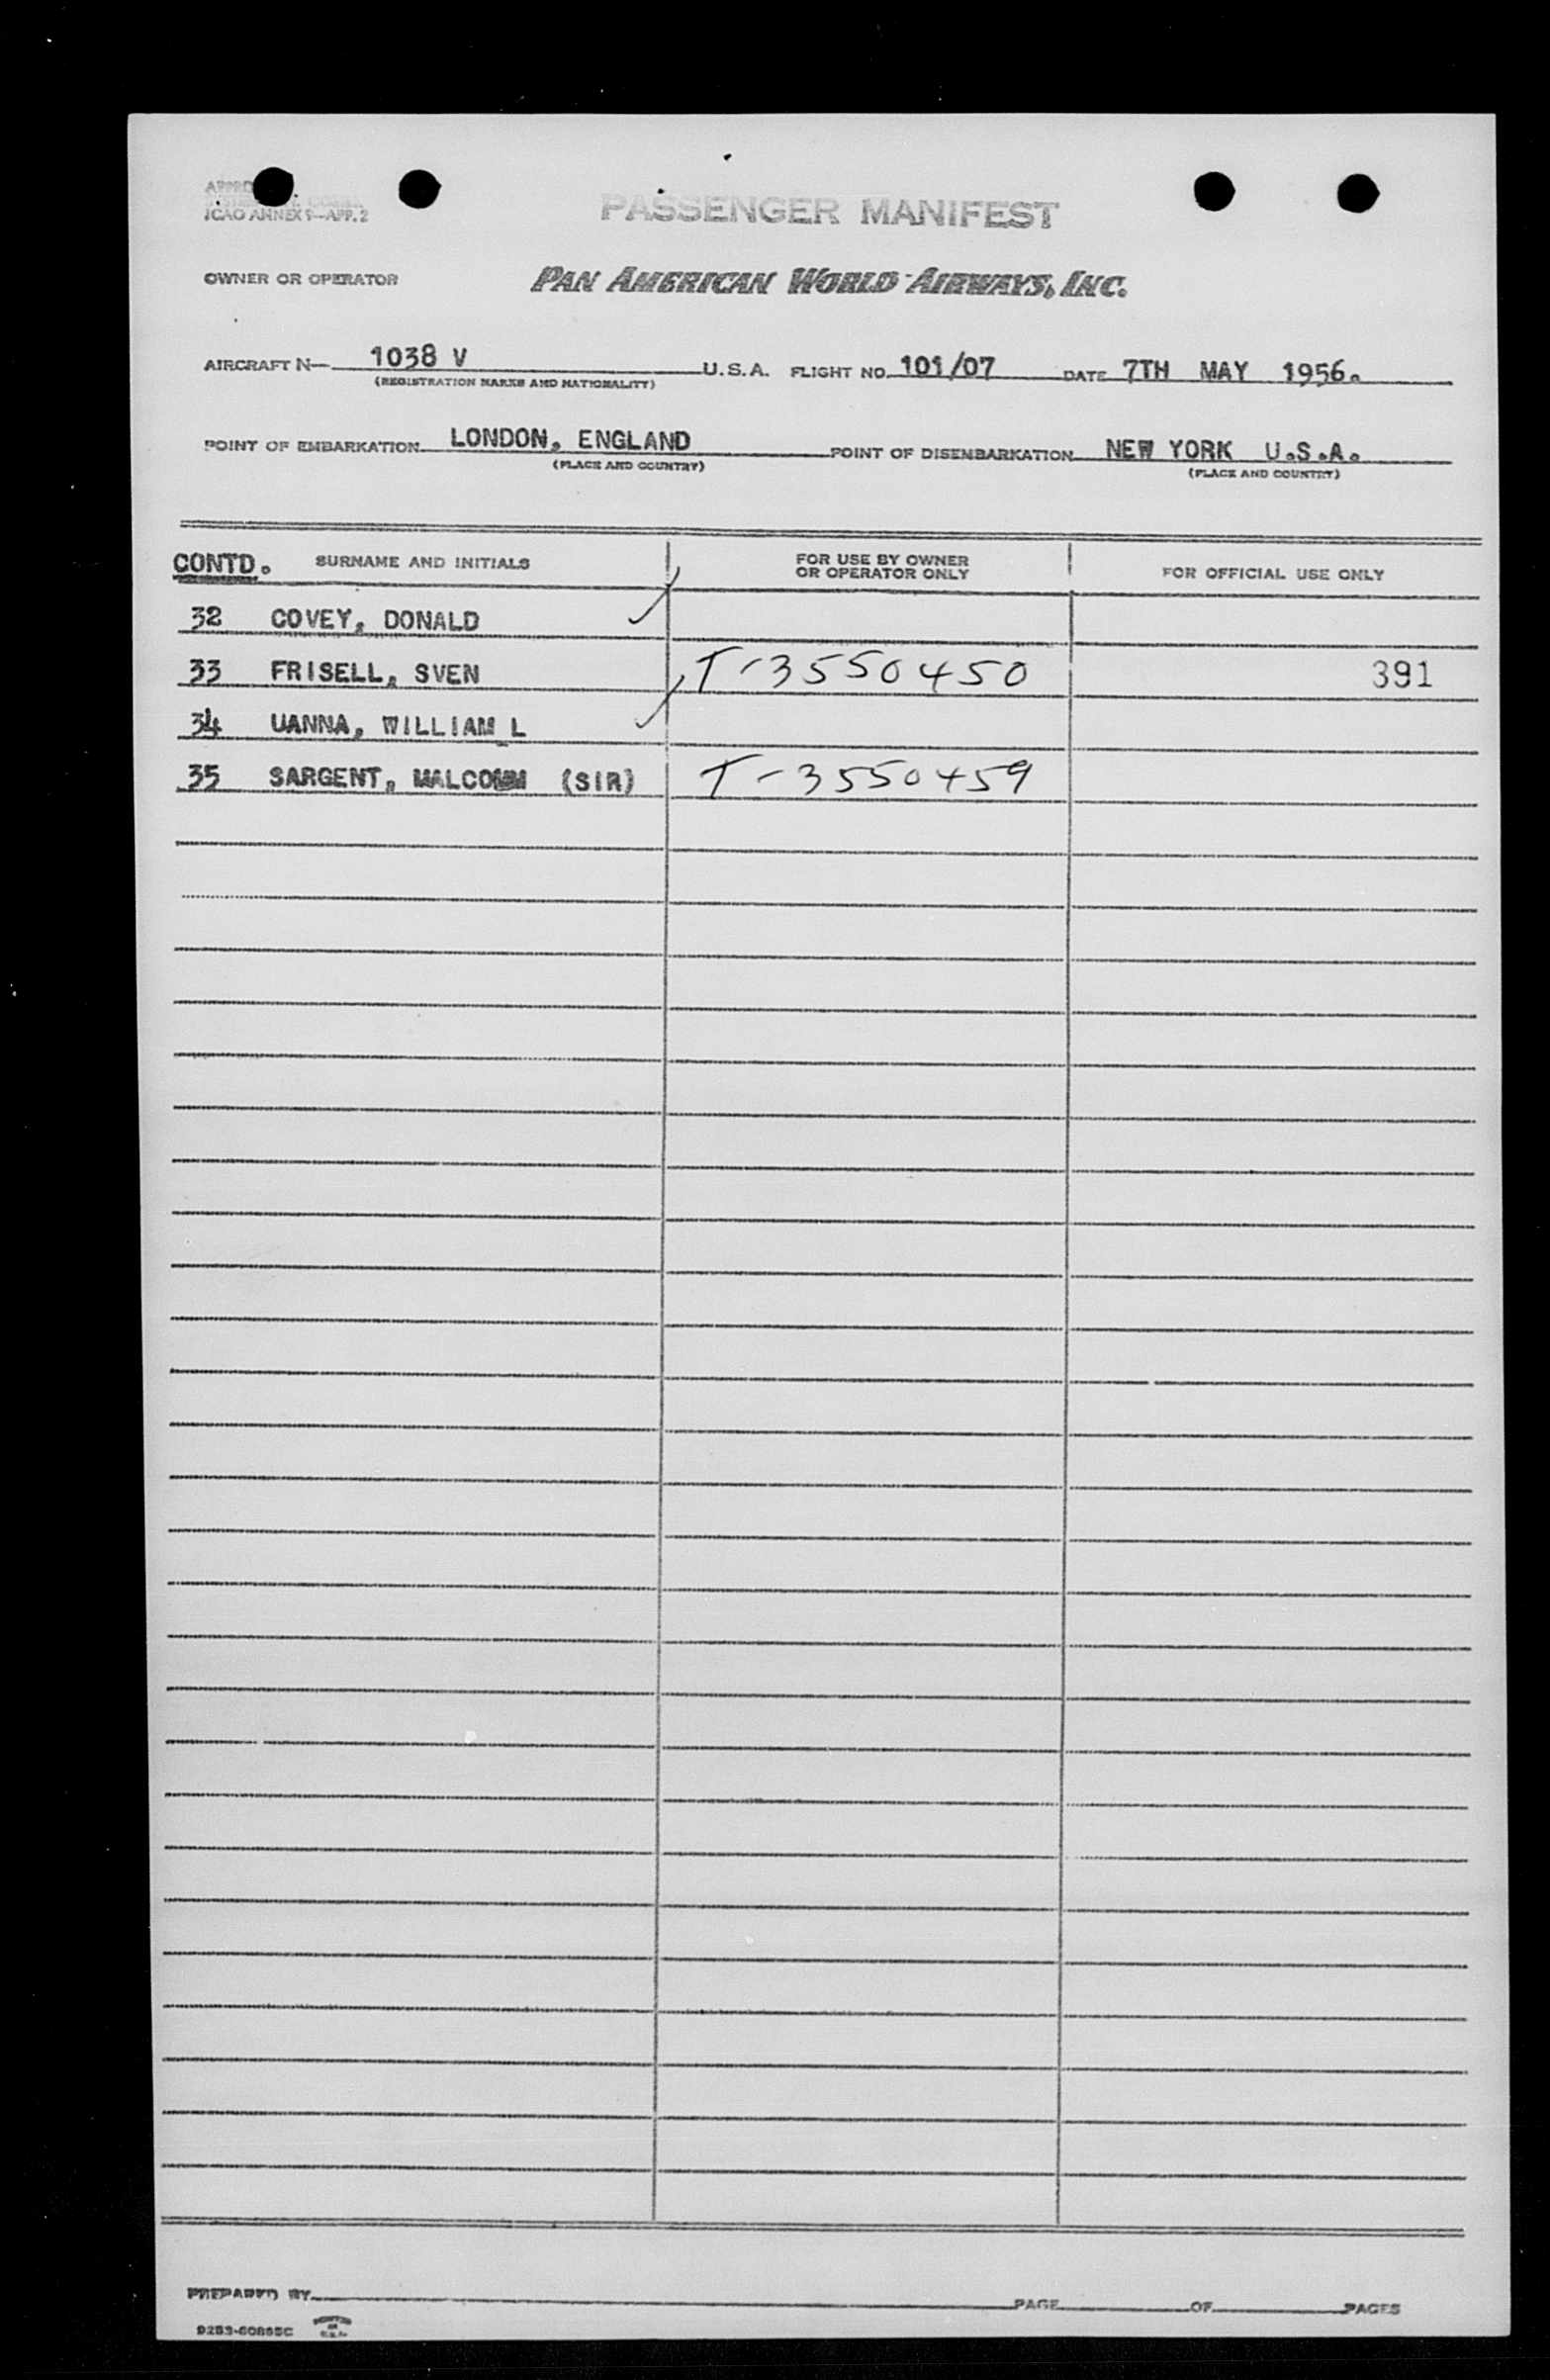 ICAO ANNEX 9—APP. 2
PASSENGER MANIFEST
OWNER OR OPERATOR PAN AMERICAN WORLD AIRWAYS, INC.
AIRCRAFT N— 1038 V U.S.A. FLIGHT NO. 101/07 DATE 7TH MAY 1956.
(REGISTRATION MARKS AND NATIONALITY)
POINT OF EMBARKATION LONDON, ENGLAND POINT OF DISEMBARKATION NEW YORK U.S.A.
(PLACE AND COUNTRY) (PLACE AND COUNTRY)
CONTD. SURNAME AND INITIALS FOR USE BY OWNER OR OPERATOR ONLY FOR OFFICIAL USE ONLY
32 COVEY, DONALD
33 FRISELL, SVEN T-3550450 391
34 UANNA, WILLIAM L
35 SARGENT, MALCOMM (SIR) T-3550459
PREPARED BY PAGE OF PAGES